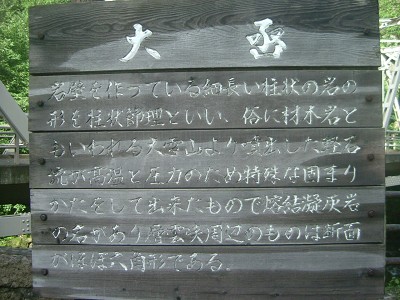 大函
岩壁を作っている細長い柱状の岩の
形を柱状節理といい、俗に材木岩と
もいわれる大雪山より噴出した軽石
流が高温と圧力のため特殊な固まり
かたをして出来たもので熔結凝灰岩
の名があり層雲峡周辺のものは断面
がほぼ六角形である。